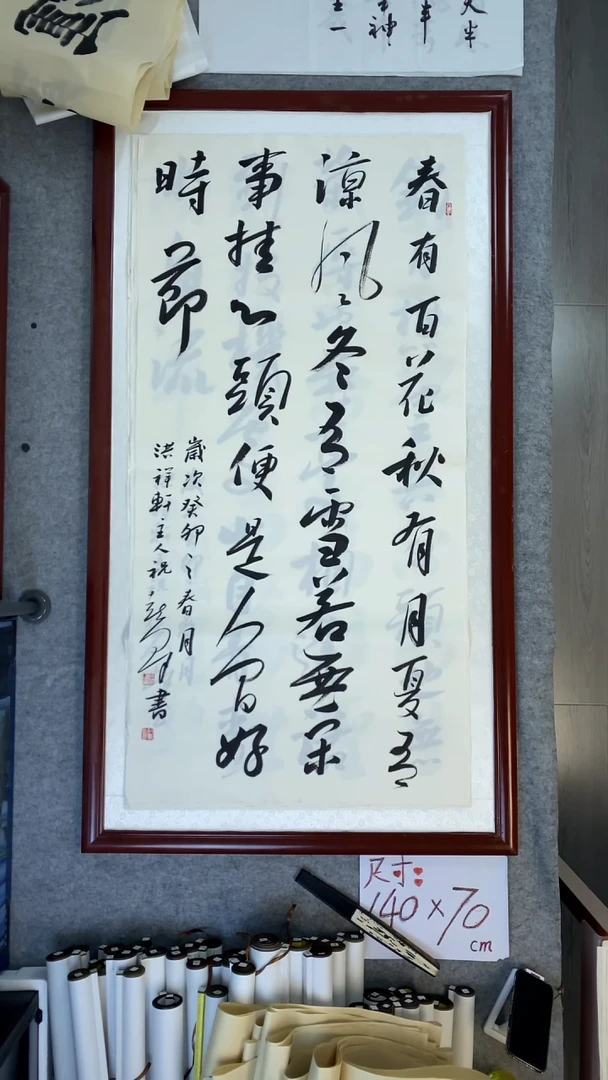 春有百花秋有月夏有
涼風冬有雪若無閑
事挂心頭便是人間好
時節
歲次癸卯之春月
洪祥軒主人祝
書
尺寸:
140×70
cm